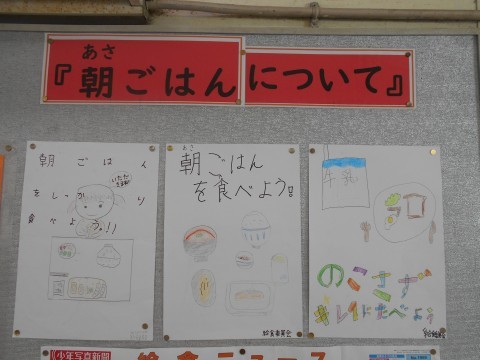 あさ
『朝ごはんについて』
朝ごはん
をしっかり
食べよう!!
あさ
朝ごはん
を食べよう!!
給食委員会
牛乳
のこさず
キレイにたべよう
少年写真新聞
給食ニュース